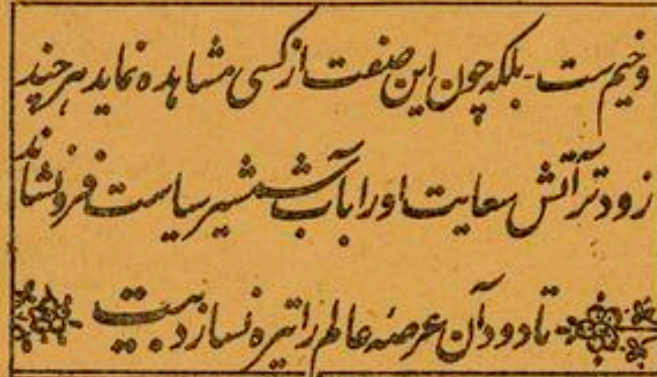 وخیم ست - بلکه چون این صفت از کسی مشاهده نماید هر چند
زود تر آتش سعایت او را بآب شمشیر سیاست فرو نشاند
تا دود آن عرصهٔ عالم را تیره نسازد بیت